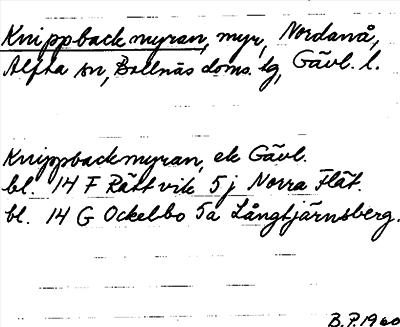 Knippbackmyran, myr, Nordanå,
Alfta sn, Bollnäs doms. tg, Gävl. l.
Knippbackmyran, ek Gävl.
bl. 14 F Rättvik 5j Norra Flät.
bl. 14 G Ockelbo 5a Långtjärnsberg.
B.P. 1960